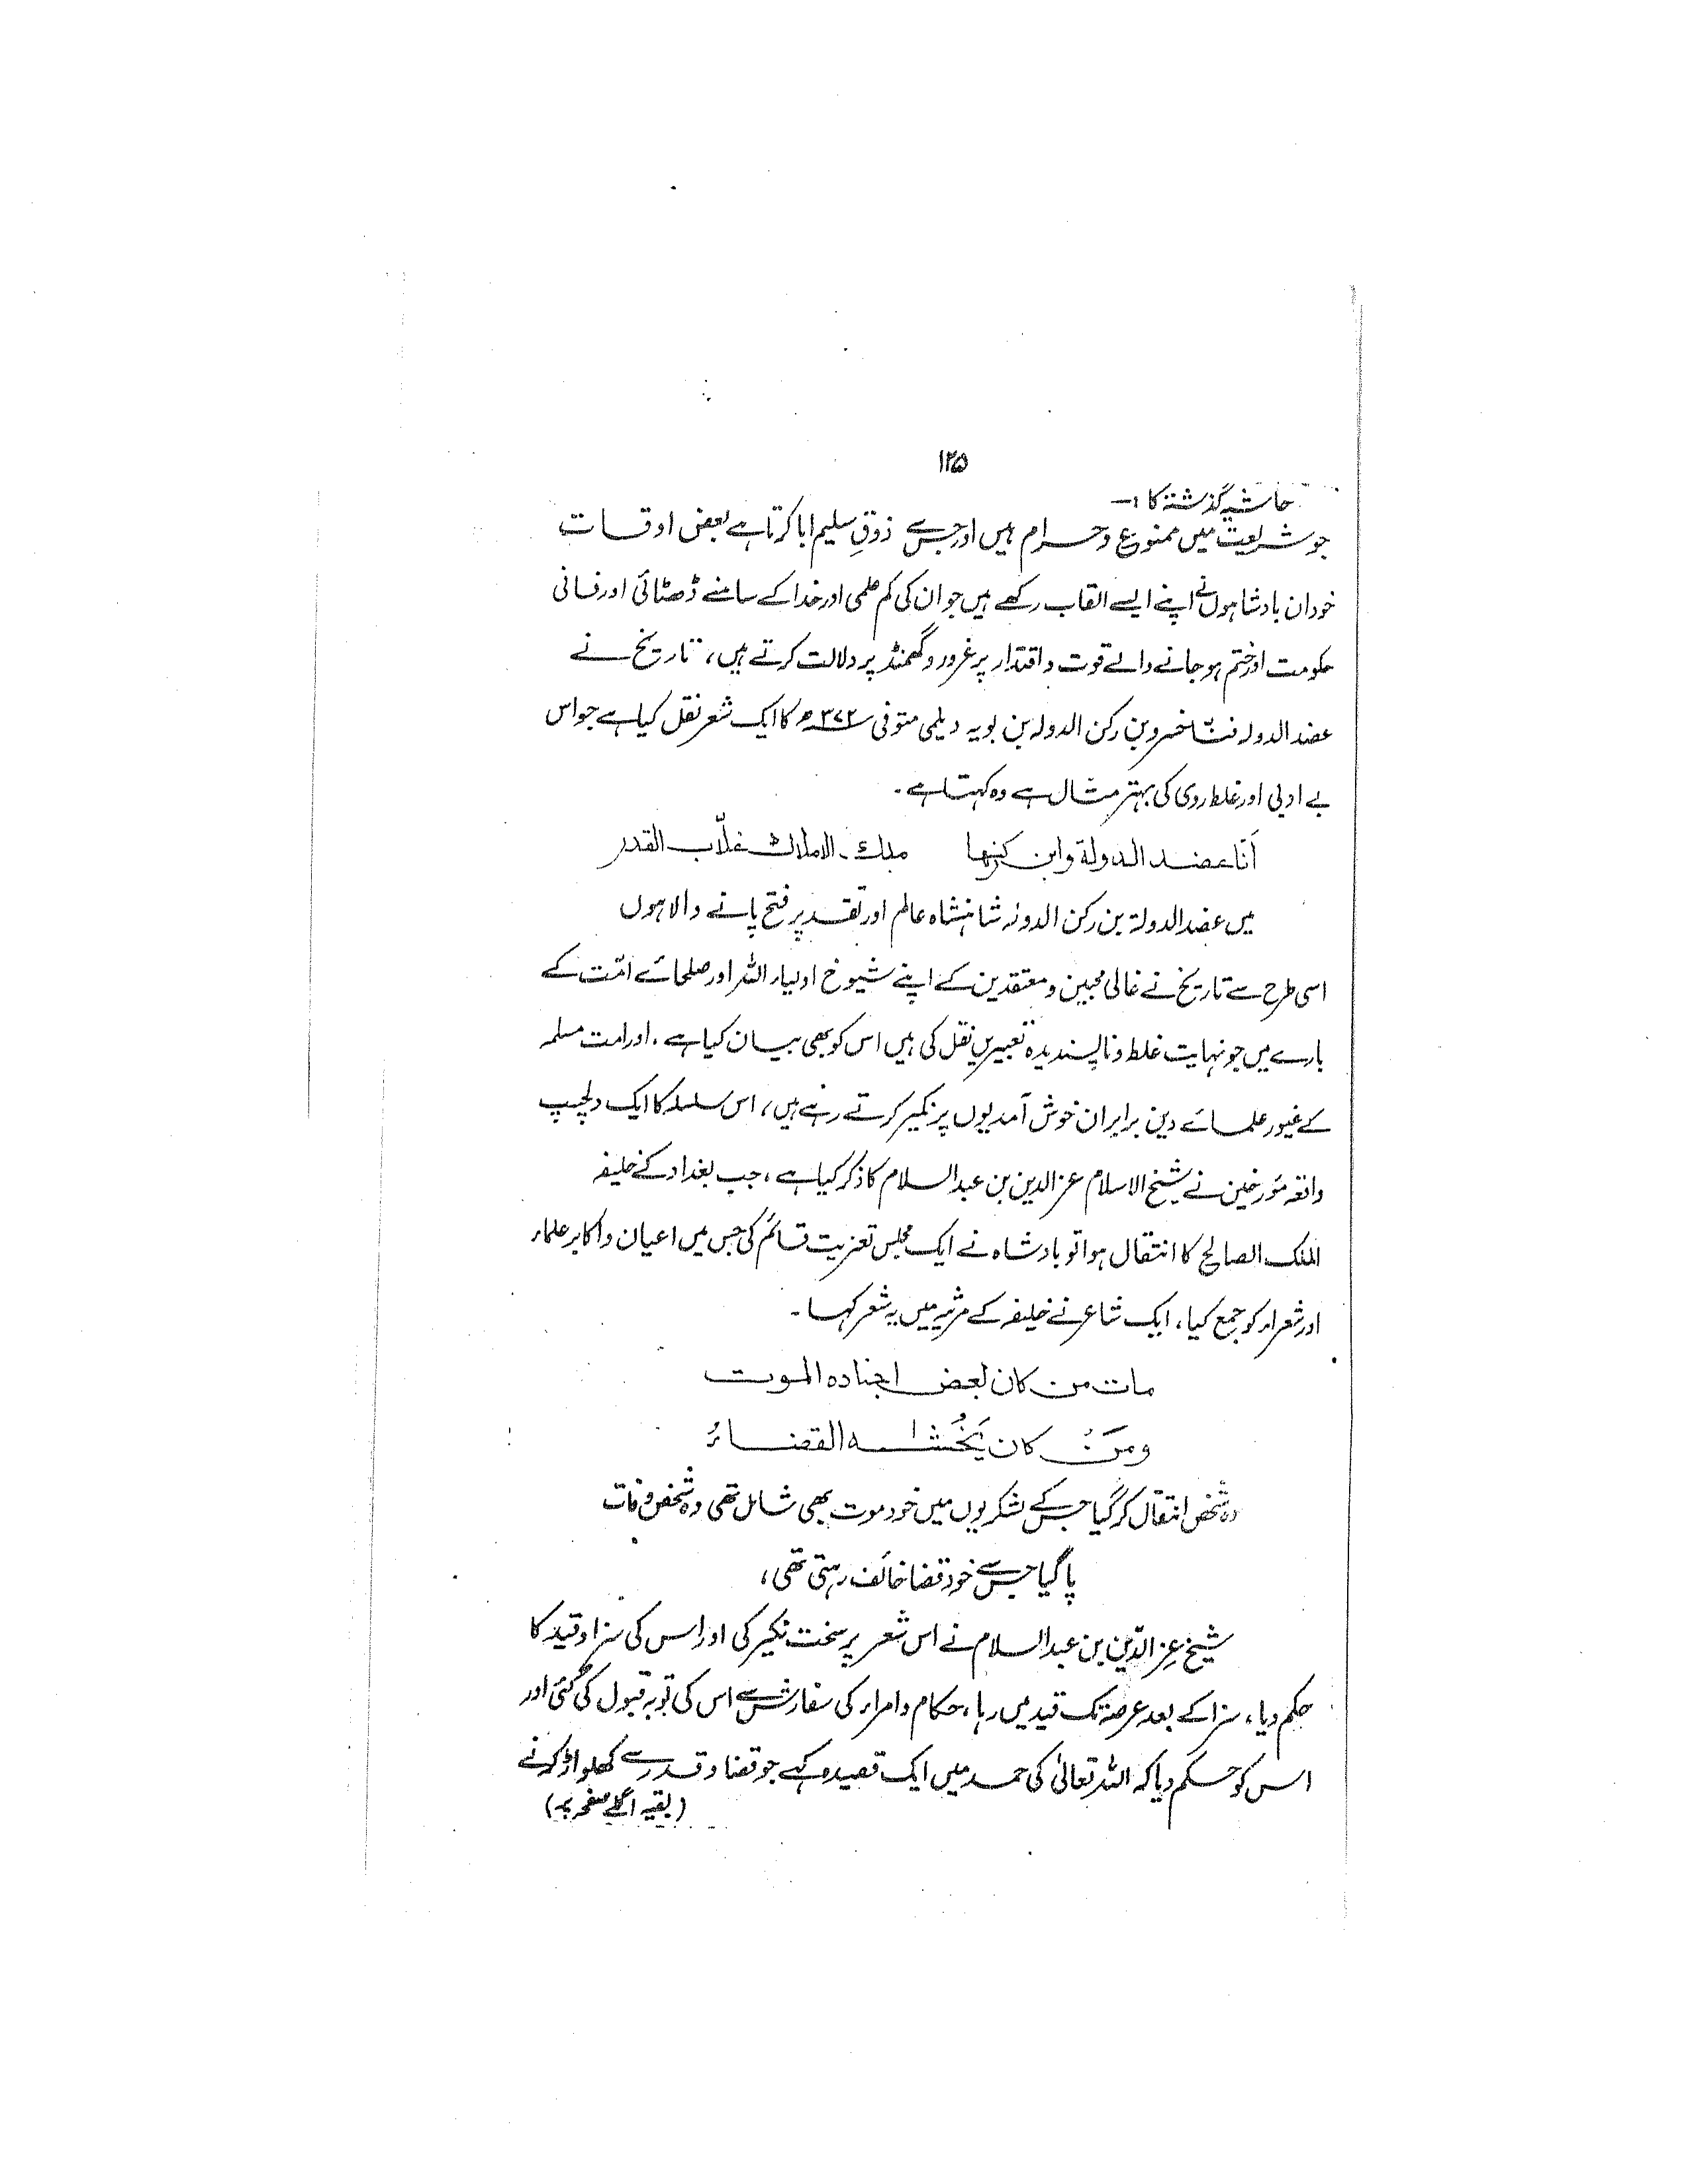 ۱۲۵
حاشیہ گذشتہ کا :-
جو شریعت میں ممنوع و حرام ہیں اور جس سے ذوقِ سلیم ابا کرتا ہے بعض اوقات
خود ان بادشاہوں نے اپنے ایسے القاب رکھے ہیں جو ان کی کم علمی اور خدا کے سامنے ڈھٹائی اور فانی
حکومت اور ختم ہو جانے والے قوت و اقتدار پر غرور و گھمنڈ پر دلالت کرتے ہیں، تاریخ نے
عضد الدولہ فنّاخسرو بن رکن الدولہ بن بویہ دیلمی متوفی ۳۷۲ھ کا ایک شعر نقل کیا ہے جو اس
بے ادبی اور غلط روی کی بہتر مثال ہے وہ کہتا ہے ۔
اَنَا عضد الدولة وابن رکنہا ملک الاملاک غلّاب القدر
میں عضد الدولۃ بن رکن الدولہ شاہنشاہ عالم اور تقدیر پر فتح پانے والا ہوں
اسی طرح سے تاریخ نے غالی محبین و معتقدین کے اپنے شیوخ اولیاء اللہ اور صلحائے امّت کے
بارے میں جو نہایت غلط و ناپسندیدہ تعبیریں نقل کی ہیں اس کو بھی بیان کیا ہے ۔ اور امت مسلمہ
کے غیور علمائے دین برابر ان خوش آمدیوں پر نکیر کرتے رہے ہیں، اس سلسلہ کا ایک دلچسپ
واقعہ مورخین نے شیخ الاسلام عز الدین بن عبد السلام کا ذکر کیا ہے، جب بغداد کے خلیفہ
الملک الصالح کا انتقال ہوا تو بادشاہ نے ایک مجلس تعزیت قائم کی جس میں اعیان و اکابر علماء
اور شعراء کو جمع کیا، ایک شاعر نے خلیفہ کے مرثیہ میں یہ شعر کہا ۔
مات من کان بعض اجنادہ الموت
ومَنْ کان یَخْشاہ القضاءُ
وہ شخص انتقال کر گیا جس کے لشکریوں میں خود موت بھی شامل تھی وہ شخص وفات
پا گیا جس سے خود قضا خائف رہتی تھی،
شیخ عز الدّین بن عبد السلام نے اس شعر پر سخت نکیر کی اور اس کی سزا و قید کا
حکم دیا، سزا کے بعد عرصہ تک قید میں رہا، حکام و امراء کی سفارش سے اس کی توبہ قبول کی گئی اور
اس کو حکم دیا کہ اللہ تعالیٰ کی حمد میں ایک قصیدہ کہے جو قضا و قدر سے کھلواڑ کرنے
(بقیہ اگلے صفحہ پر)